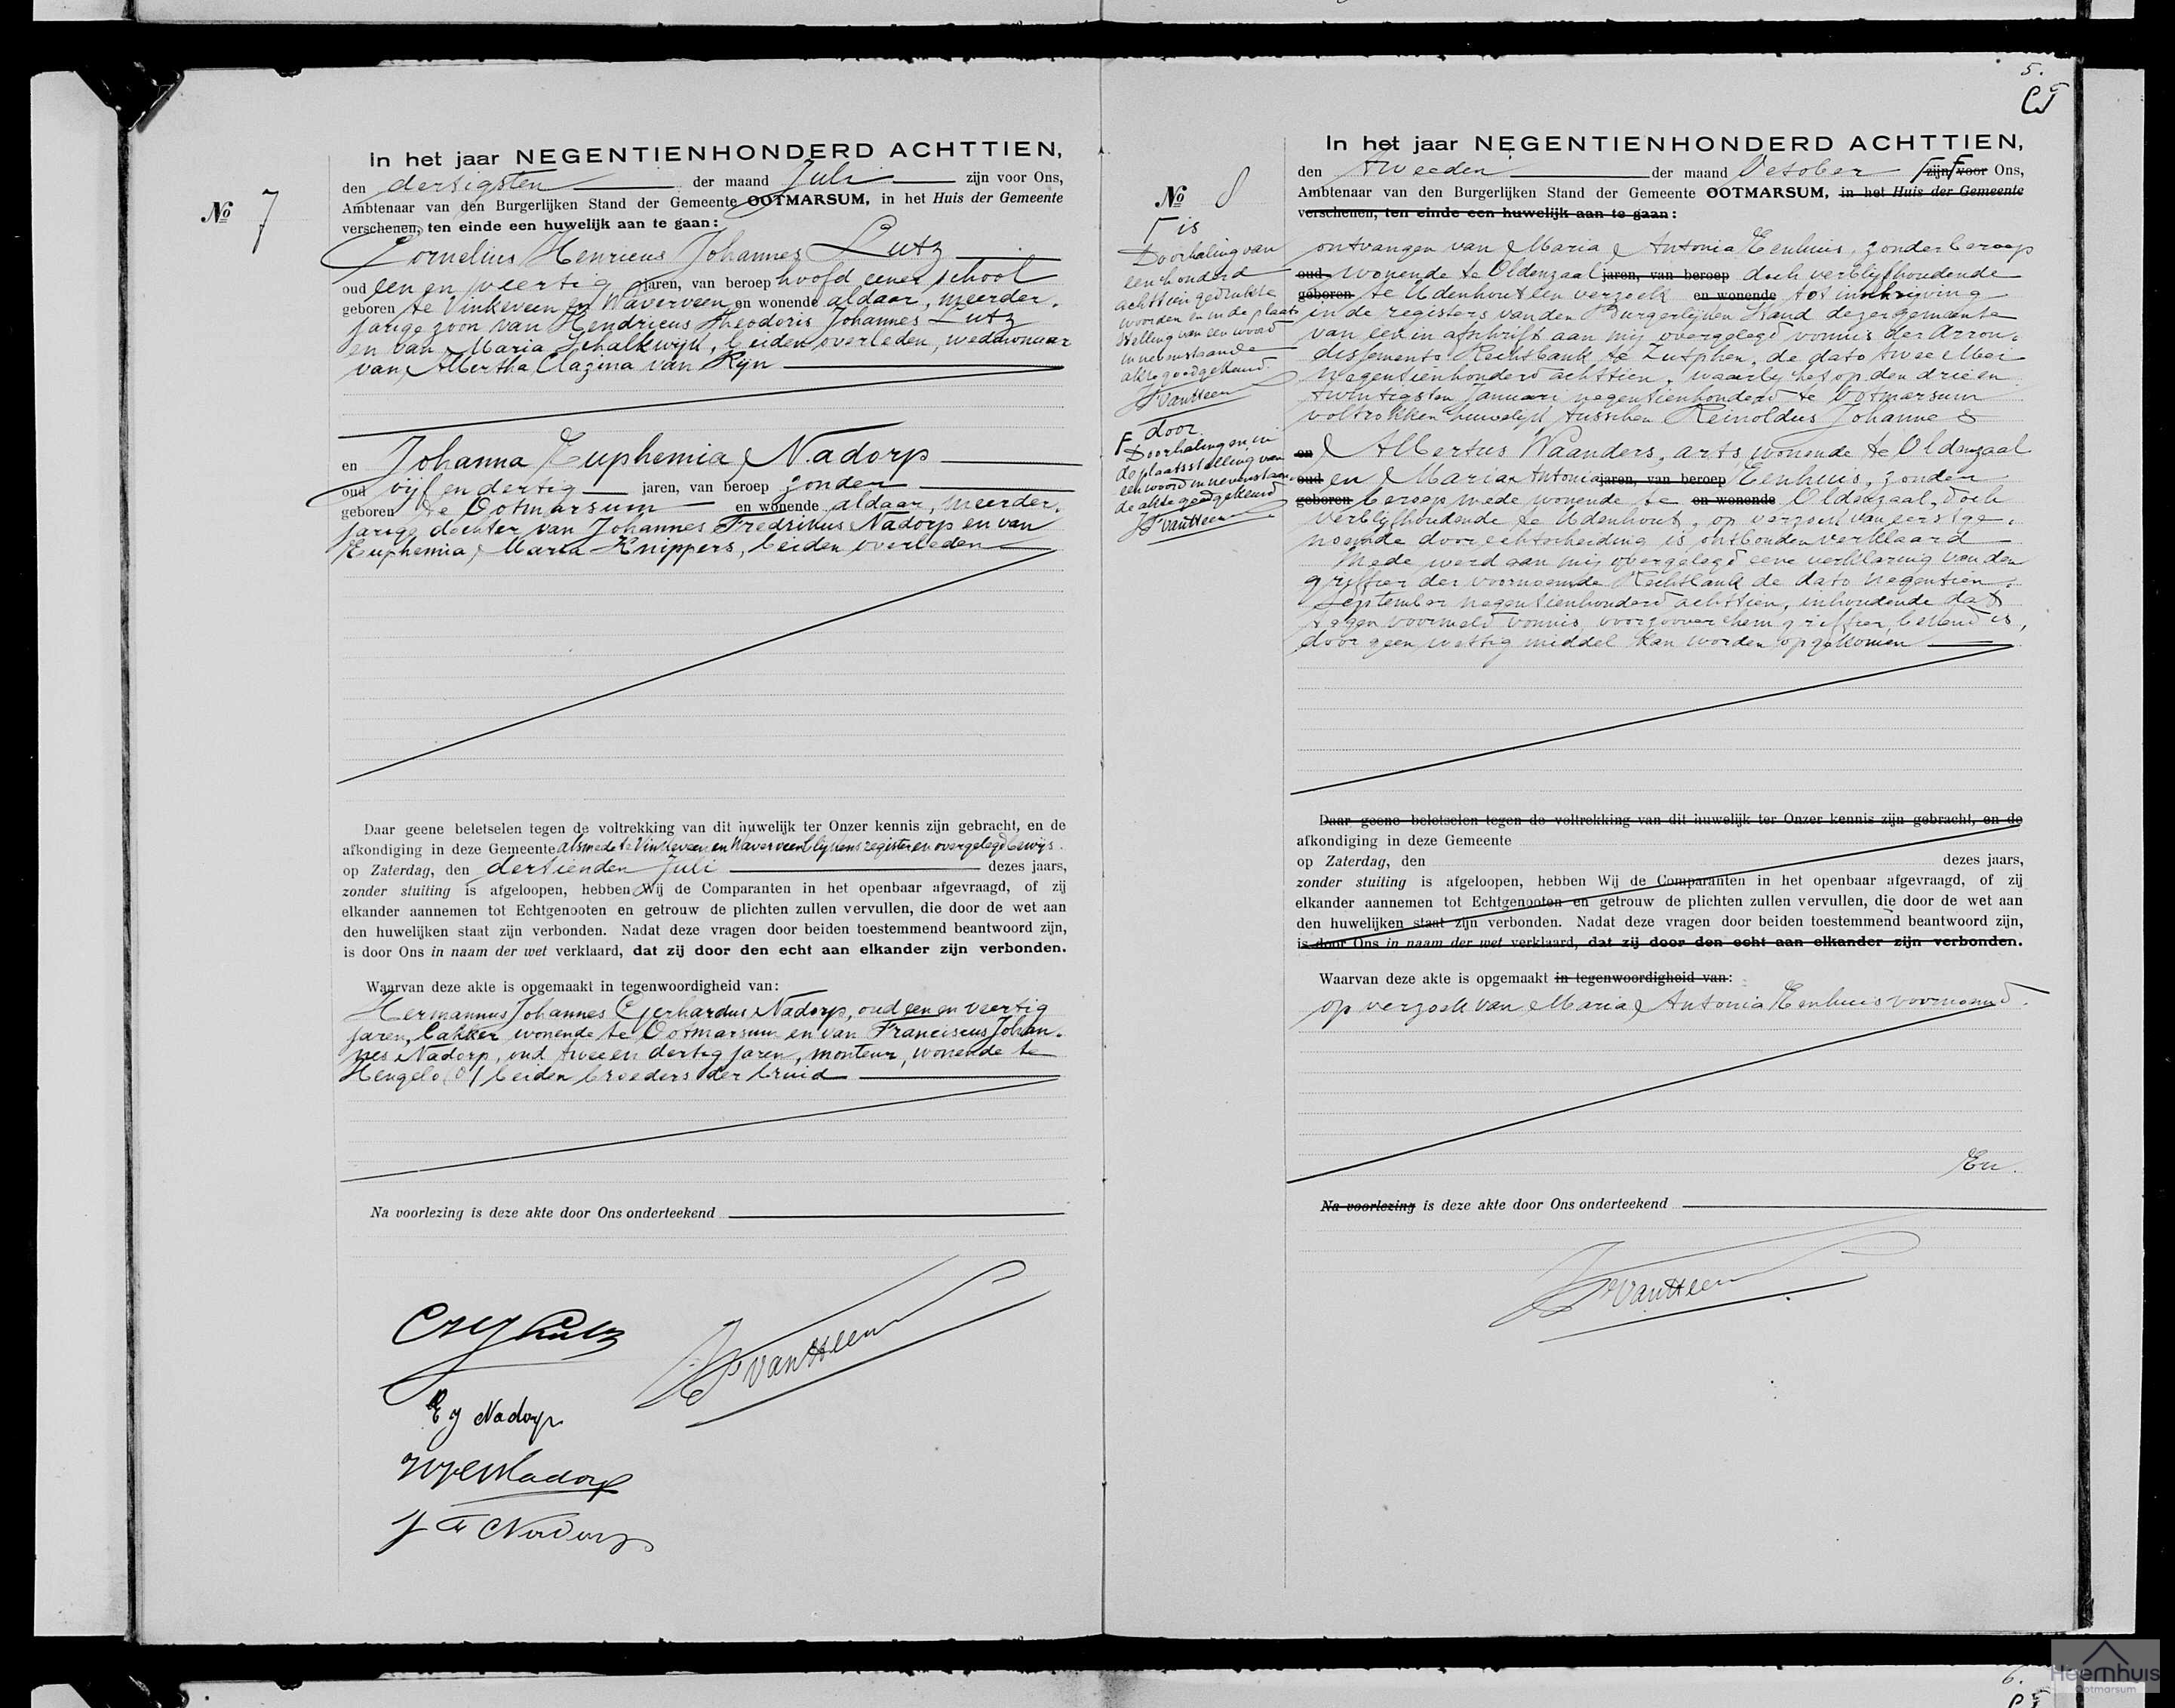 In het jaar NEGENTIENHONDERD ACHTTIEN,
den dertigsten der maand Juli zijn voor Ons,
Nº 7
Ambtenaar van den Burgerlijken Stand der Gemeente OOTMARSUM, in het Huis der Gemeente
verschenen, ten einde een huwelijk aan te gaan:
Cornelius Henricus Johannes Lutz
oud een en veertig jaren, van beroep hoofd eener school
geboren te Vinkeveen en Waverveen en wonende aldaar, meerder-
jarige zoon van Hendricus Theodoris Johannes Lutz
en van Maria Schalkwijk, beiden overleden, weduwnaar
van Albertha Clazina van Rijn
en Johanna Euphemia Nadorp
oud vijf en dertig jaren, van beroep zonder
geboren te Ootmarsum en wonende aldaar, meerder-
jarige dochter van Johannes Fredrikus Nadorp en van
Euphemia Maria Knippers, beiden overleden
Daar geene beletselen tegen de voltrekking van dit huwelijk ter Onzer kennis zijn gebracht, en de
afkondiging in deze Gemeente alsmede te Vinkeveen en Waverveen blijkens register en overgelegd bewijs
op Zaterdag, den dertienden Juli dezes jaars,
zonder stuiting is afgeloopen, hebben Wij de Comparanten in het openbaar afgevraagd, of zij
elkander aannemen tot Echtgenooten en getrouw de plichten zullen vervullen, die door de wet aan
den huwelijken staat zijn verbonden. Nadat deze vragen door beiden toestemmend beantwoord zijn,
is door Ons in naam der wet verklaard, dat zij door den echt aan elkander zijn verbonden.
Waarvan deze akte is opgemaakt in tegenwoordigheid van:
Hermannus Johannes Gerhardus Nadorp, oud een en veertig
jaren, bakker wonende te Ootmarsum en van Franciscus Johan-
nes Nadorp, oud twee en dertig jaren, monteur, wonende te
Hengelo (O) beiden broeders der bruid
Na voorlezing is deze akte door Ons onderteekend
CHJ Lutz
van Heen
E J Nadorp
HJG Nadorp
J F Nadorp
5.
In het jaar NEGENTIENHONDERD ACHTTIEN,
den tweeden der maand October zijn voor Ons,
Nº 8
Ambtenaar van den Burgerlijken Stand der Gemeente OOTMARSUM, in het Huis der Gemeente
verschenen, ten einde een huwelijk aan te gaan:
Γ is
Doorhaling van
een honderd
achttien gedrukte
woorden en in de plaats
stelling van een woord
in nevenstaande
akte goedgekeurd.
van Heen
F door
Doorhaling en in
de plaatsstelling van
een woord in nevenstaan-
de akte goedgekeurd
van Heen
ontvangen van Maria Antonia Eenhuis, zonder beroep
oud wonende te Oldenzaal jaren, van beroep doch verblijfhoudende
geboren te Udenhout een verzoek en wonende tot inschrijving
in de registers van den Burgerlijken Stand dezer gemeente
van een in afschrift aan mij overgelegd vonnis der Arron-
dissements Rechtbank te Zutphen, de dato twee Mei
negentienhonderd achttien, waarbij het op den drie en
twintigsten Januari negentienhonderd te Ootmarsum
voltrokken huwelijk tusschen Reinoldus Johannes
en Albertus Waanders, arts wonende te Oldenzaal
oud en Maria Antonia jaren, van beroep Eenhuis, zonder
geboren beroep mede wonende te en wonende Oldenzaal, doch
verblijfhoudende te Udenhout, op verzoek van eerstge-
noemde door echtscheiding is ontbonden verklaard
Mede werd aan mij overgelegd eene verklaring van den
griffier der voornoemde Rechtbank de dato negentien
September negentienhonderd achttien, inhoudende dat
tegen voormeld vonnis voorzoover hem griffier bekend is,
door geen wettig middel kan worden opgekomen
Daar geene beletselen tegen de voltrekking van dit huwelijk ter Onzer kennis zijn gebracht, en de
afkondiging in deze Gemeente
op Zaterdag, den dezes jaars,
zonder stuiting is afgeloopen, hebben Wij de Comparanten in het openbaar afgevraagd, of zij
elkander aannemen tot Echtgenooten en getrouw de plichten zullen vervullen, die door de wet aan
den huwelijken staat zijn verbonden. Nadat deze vragen door beiden toestemmend beantwoord zijn,
is door Ons in naam der wet verklaard, dat zij door den echt aan elkander zijn verbonden.
Waarvan deze akte is opgemaakt in tegenwoordigheid van:
op verzoek van Maria Antonia Eenhuis voornoemd.
En
Na voorlezing is deze akte door Ons onderteekend
van Heen
6.
Heemhuis
Ootmarsum